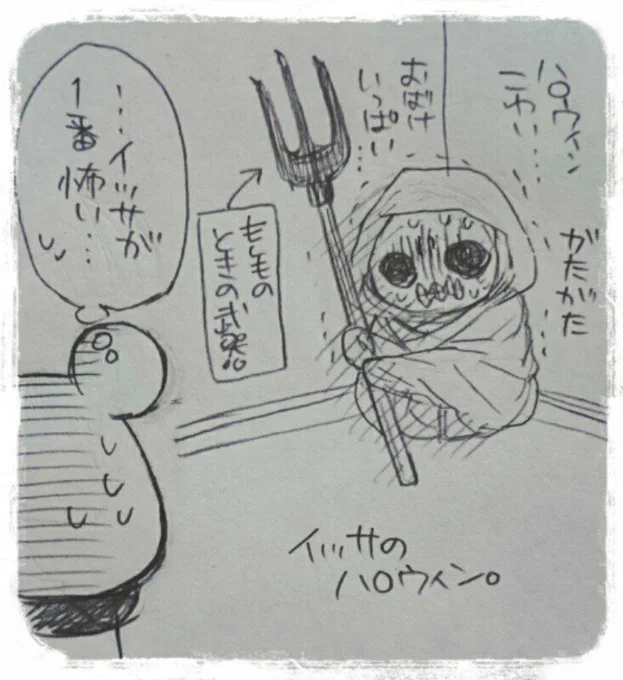 ハロウィン
こわい…
おばけ
いっぱい…
がたがた
…イッサが
1番
怖い…
もしもの
ときの武器。
イッサの
ハロウィン。